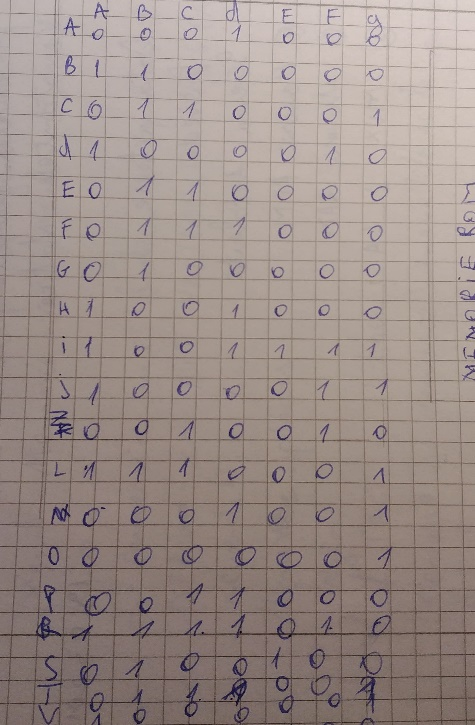 A B C d E F g
A 0 0 0 1 0 0 0
B 1 1 0 0 0 0 0
C 0 1 1 0 0 0 1
d 1 0 0 0 0 1 0
E 0 1 1 0 0 0 0
F 0 1 1 1 0 0 0
G 0 1 0 0 0 0 0
H 1 0 0 1 0 0 0
i 1 0 0 1 1 1 1
j 1 0 0 0 0 1 1
0 0 1 0 0 1 0
L 1 1 1 0 0 0 1
0 0 0 1 0 0 1
O 0 0 0 0 0 0 1
P 0 0 1 1 0 0 0
1 1 1 1 0 1 0
S 0 1 0 0 1 0 0
T 0 1 1 0 0
V 1 0 0 0 0 0
MEMORIE ROM